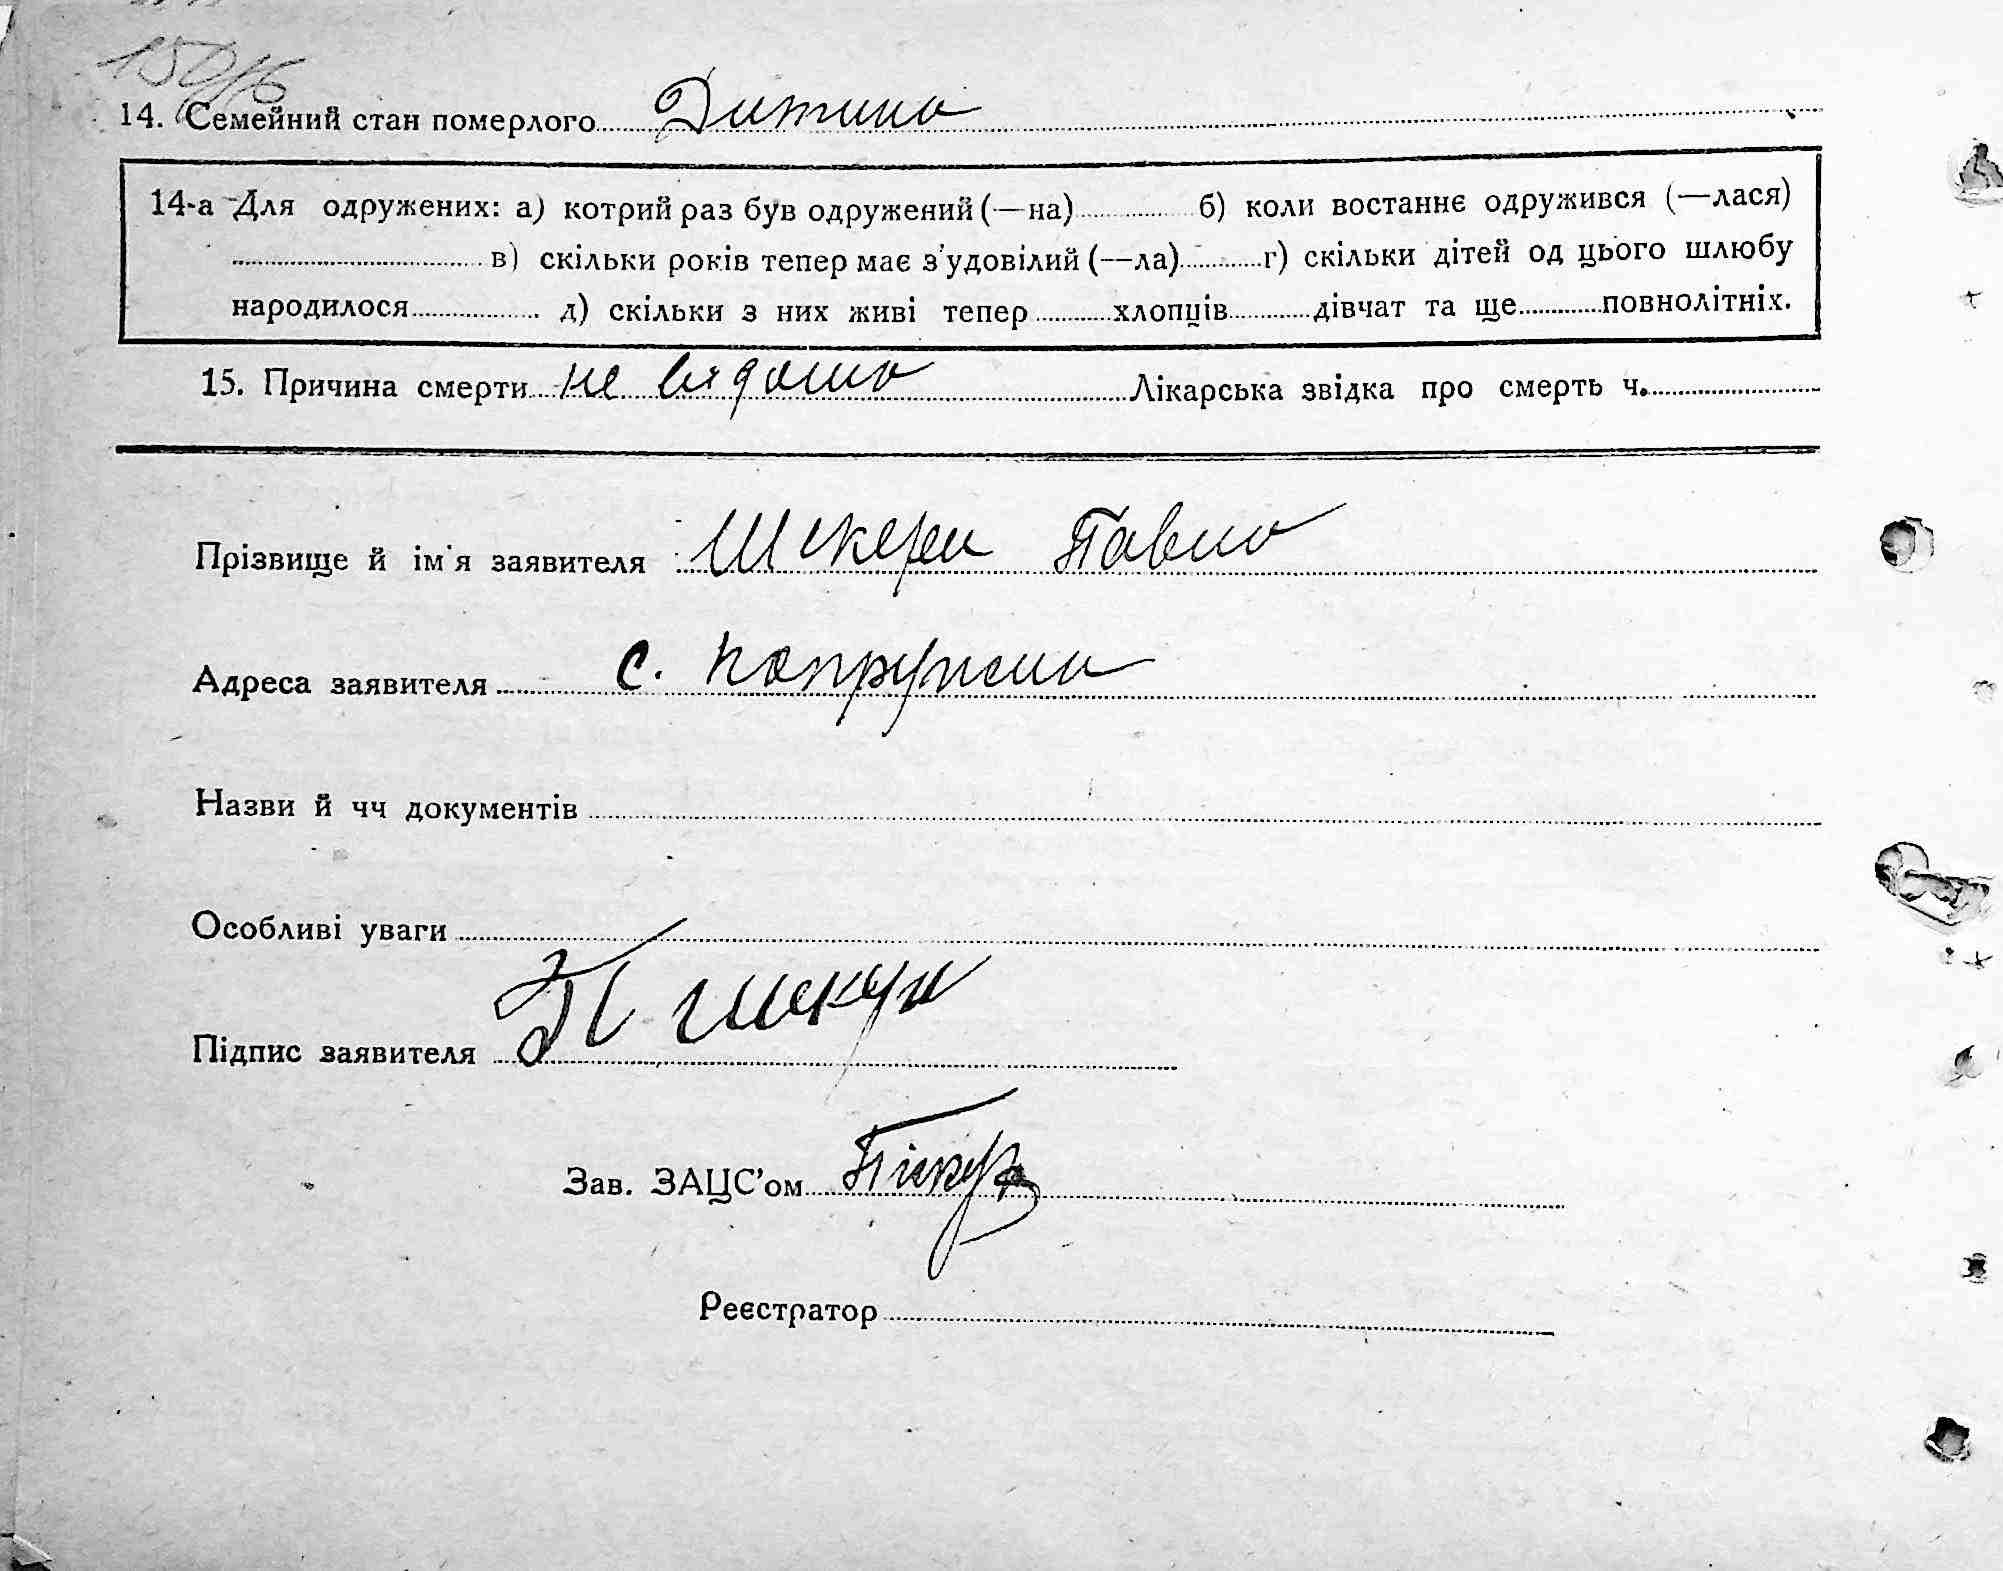 150/16
14. Семейний стан померлого Дитина
14-а Для одружених: а) котрий раз був одружений (—на) б) коли востаннє одружився (—лася)
в) скільки років тепер має з'удовілий (—ла) г) скільки дітей од цього шлюбу
народилося д) скільки з них живі тепер хлопців дівчат та ще повнолітніх.
15. Причина смерти не відома Лікарська звідка про смерть ч.
Прізвище й ім'я заявителя Павло
Адреса заявителя с. Попружна
Назви й чч документів
Особливі уваги
Підпис заявителя
Зав. ЗАЦС'ом
Реєстратор